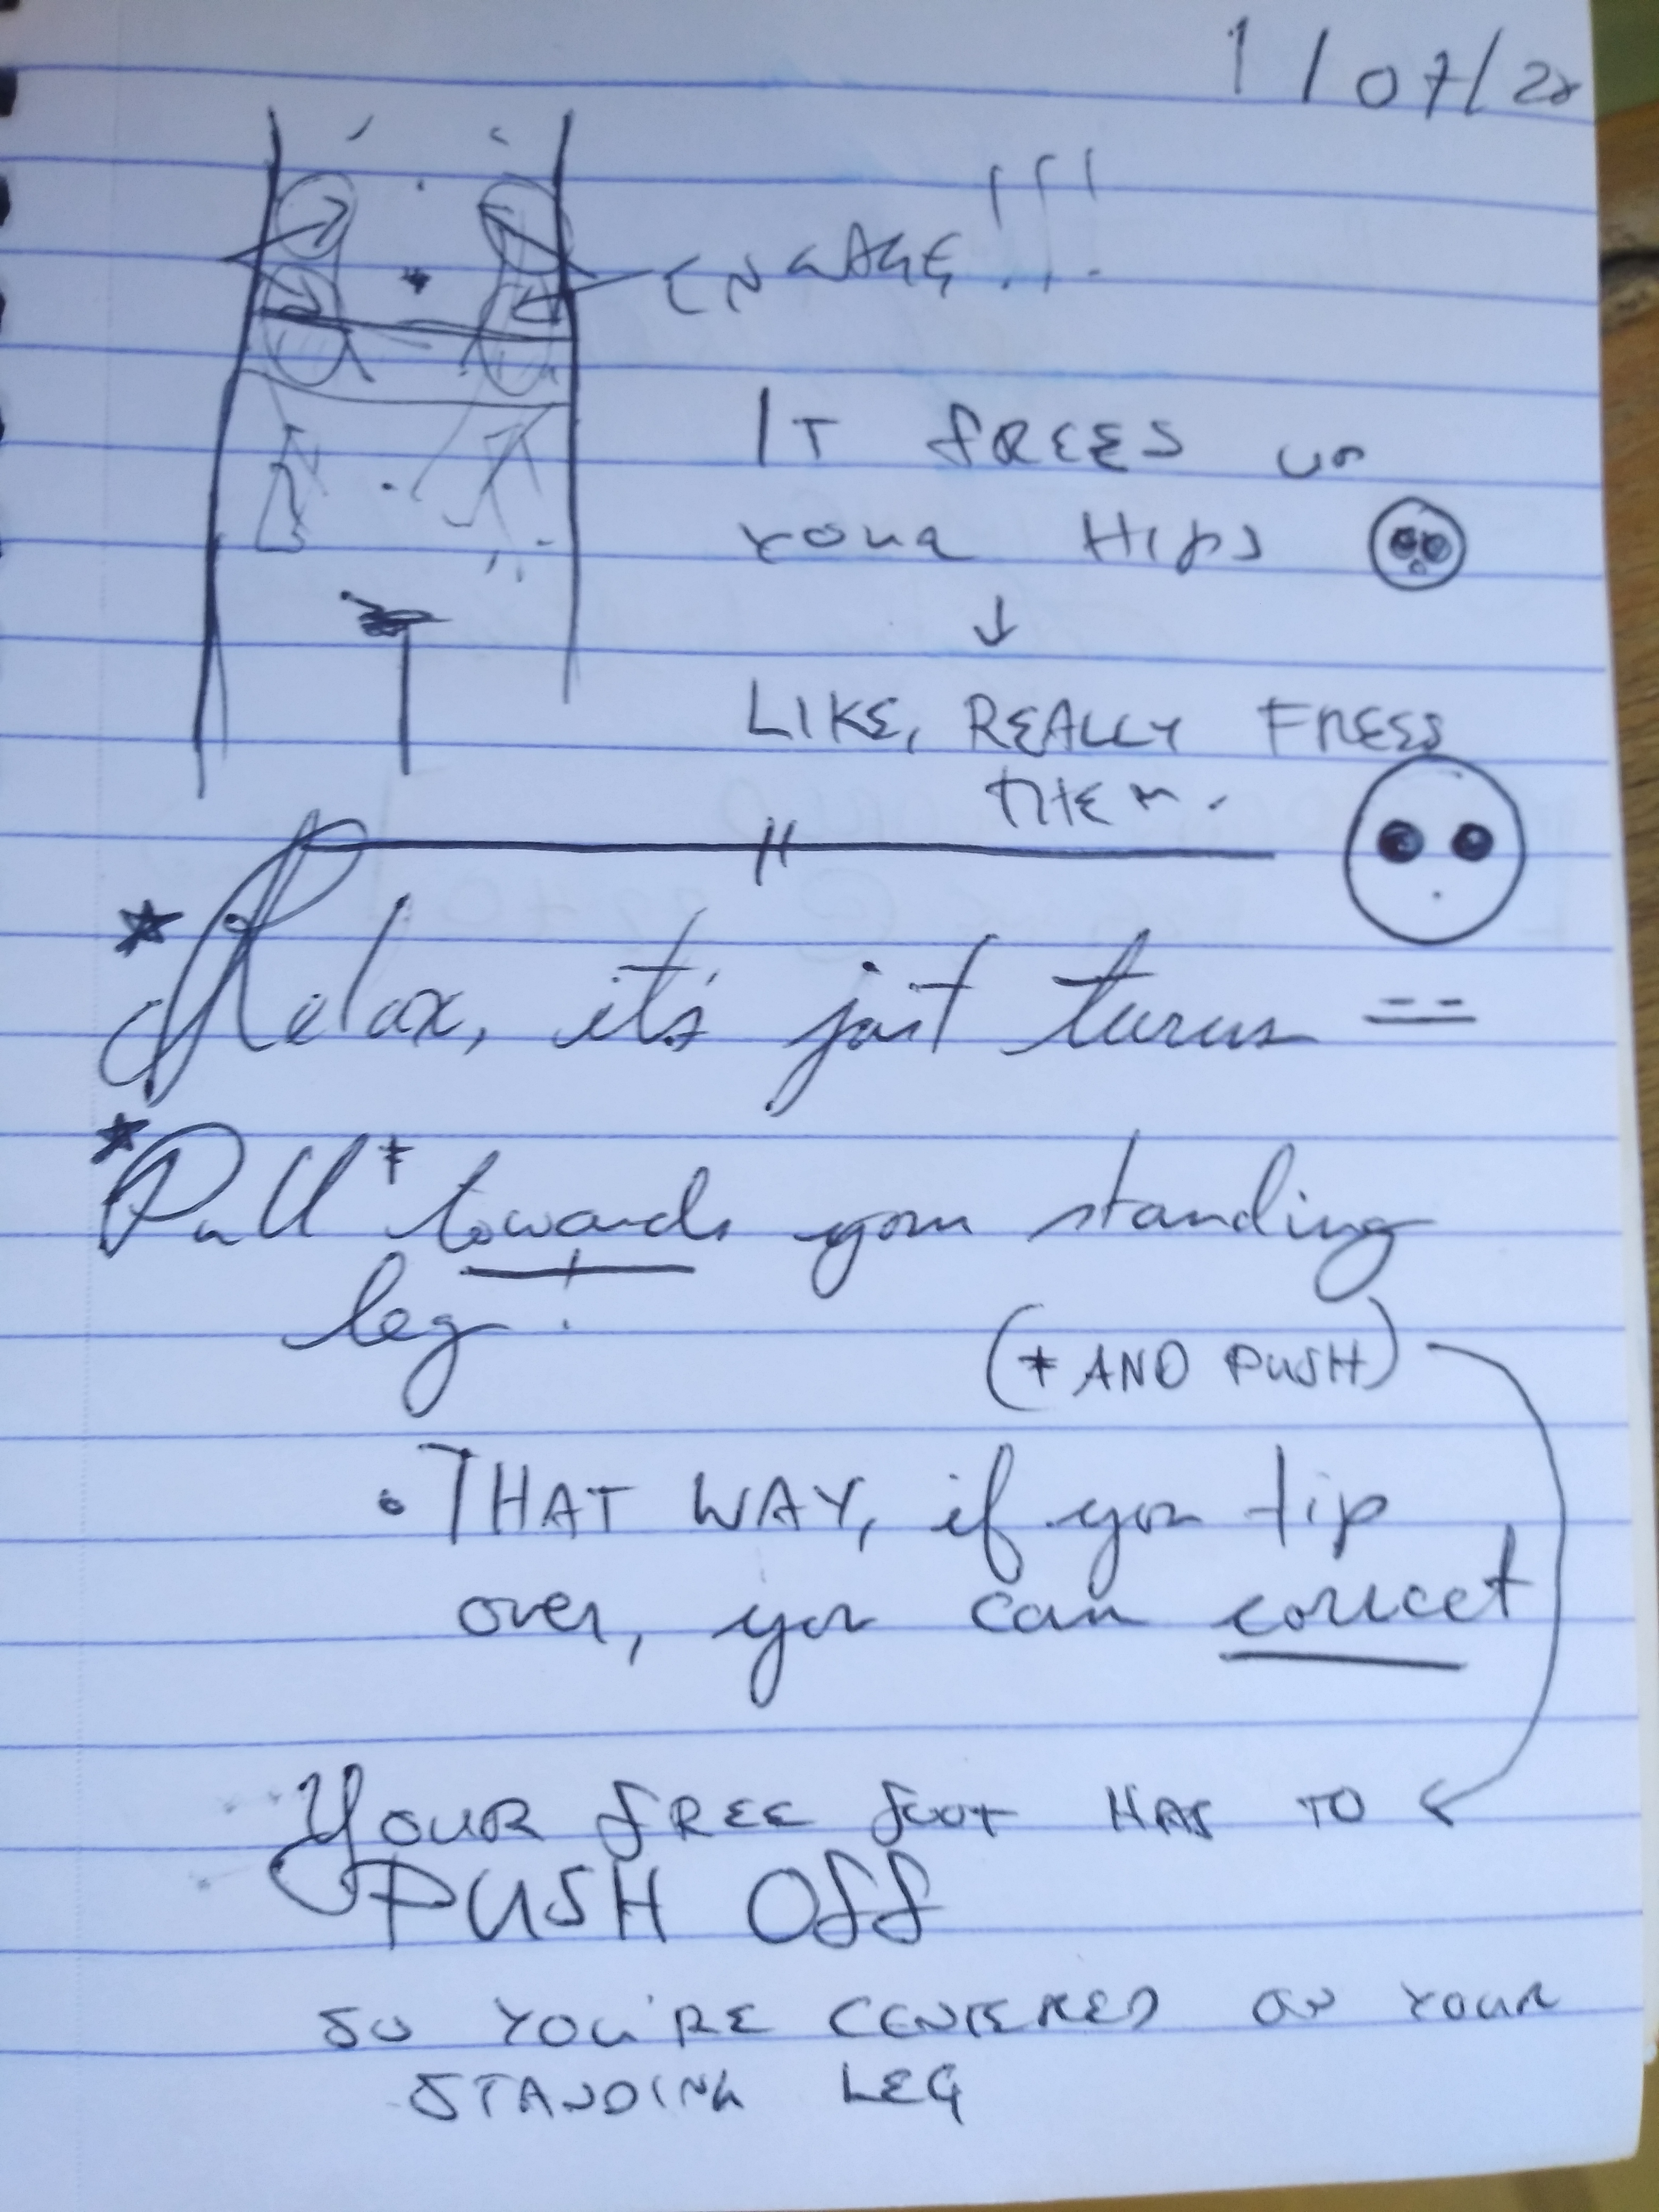 1/07/22
ENGAGE!!!
IT FREES UP
YOUR HIPS
↓
LIKE, REALLY FREES
THEM.
* Relax, it's just turns
* Pull* towards your standing
leg!
(* AND PUSH)
• THAT WAY, if you tip
over, you can correct
YOUR FREE FOOT HAS TO
PUSH OFF
SO YOU'RE CENTERED ON YOUR
STANDING LEG